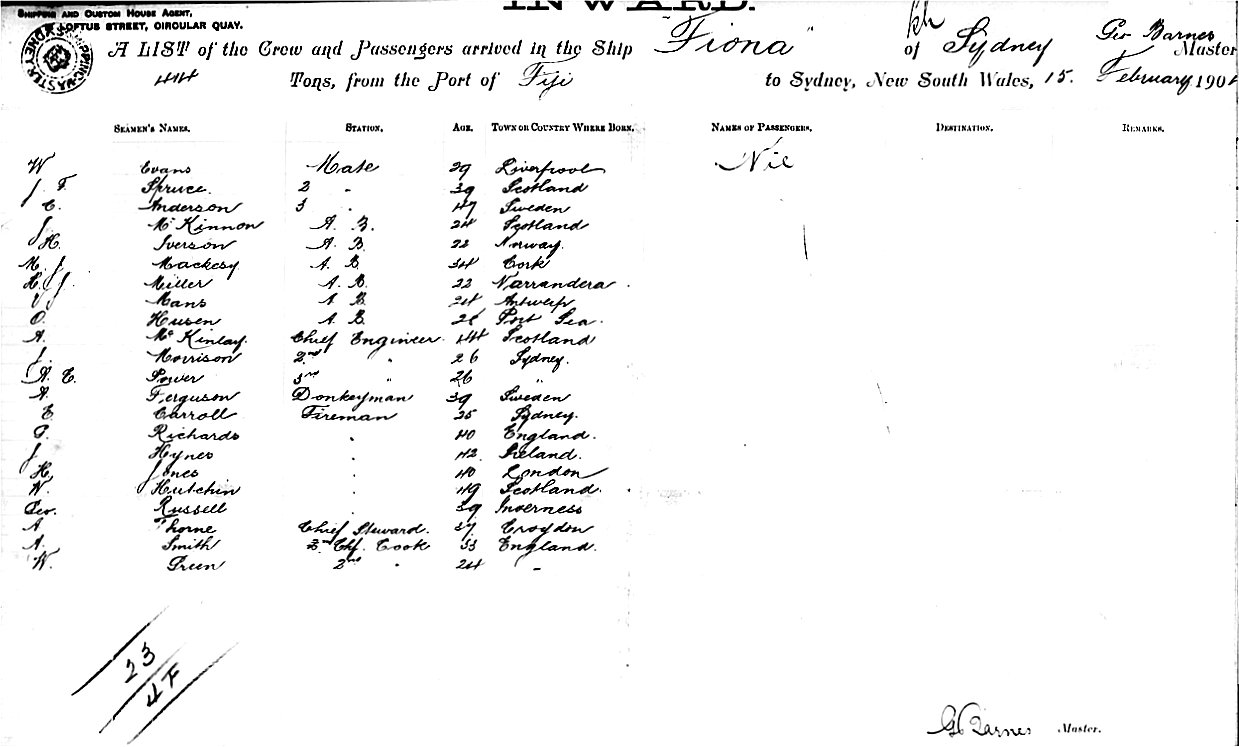 INWARD.
SHIPPING AND CUSTOM HOUSE AGENT,
LOFTUS STREET, CIRCULAR QUAY.
A LIST of the Crew and Passengers arrived in the Ship "Fiona" of Sydney Geo Barnes Master
Tons, from the Port of Fiji to Sydney, New South Wales, 15. February 190
SEAMEN'S NAMES. STATION. AGE. TOWN OR COUNTRY WHERE BORN. NAMES OF PASSENGERS. DESTINATION. REMARKS.
W Evans Mate 29 Liverpool Nil
J. F. Spruce. 2 " 39 Scotland
C. Anderson 3 " 47 Sweden
J McKinnon A. B. 24 Scotland
H. Iverson A B 22 Norway.
M. J. Mackesy A. B 34 Cork
H. J. Miller A. B. 22 Narrandera
J Mans A B 24 Antwerp
O. Husen A. B. Port Sea.
A. McKinlay. Chief Engineer. 44 Scotland
J. Morrison 2nd " 26 Sydney.
A. E. Power 3rd " 26 "
A. Ferguson Donkeyman 39 Sweden
E Carroll Fireman 25 Sydney.
P. Richards " 40 England.
J Hynes " 42 Ireland.
H. Jones " 40 London
W. Hutchin " 49 Scotland.
Geo. Russell " 39 Inverness
A Thorne Chief Steward. 37 Croydon
A. Smith Chf. Cook 33 England.
W. Green 2nd " 24 "
23
4F
G Barnes Master.